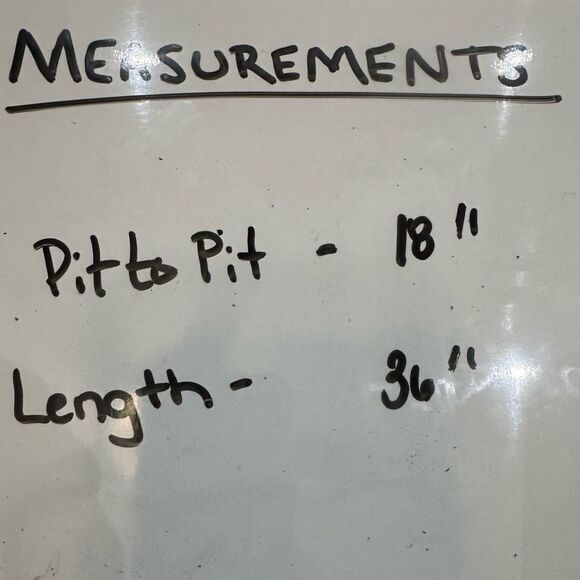 MEASUREMENTS
Pit to Pit - 18"
Length - 36"